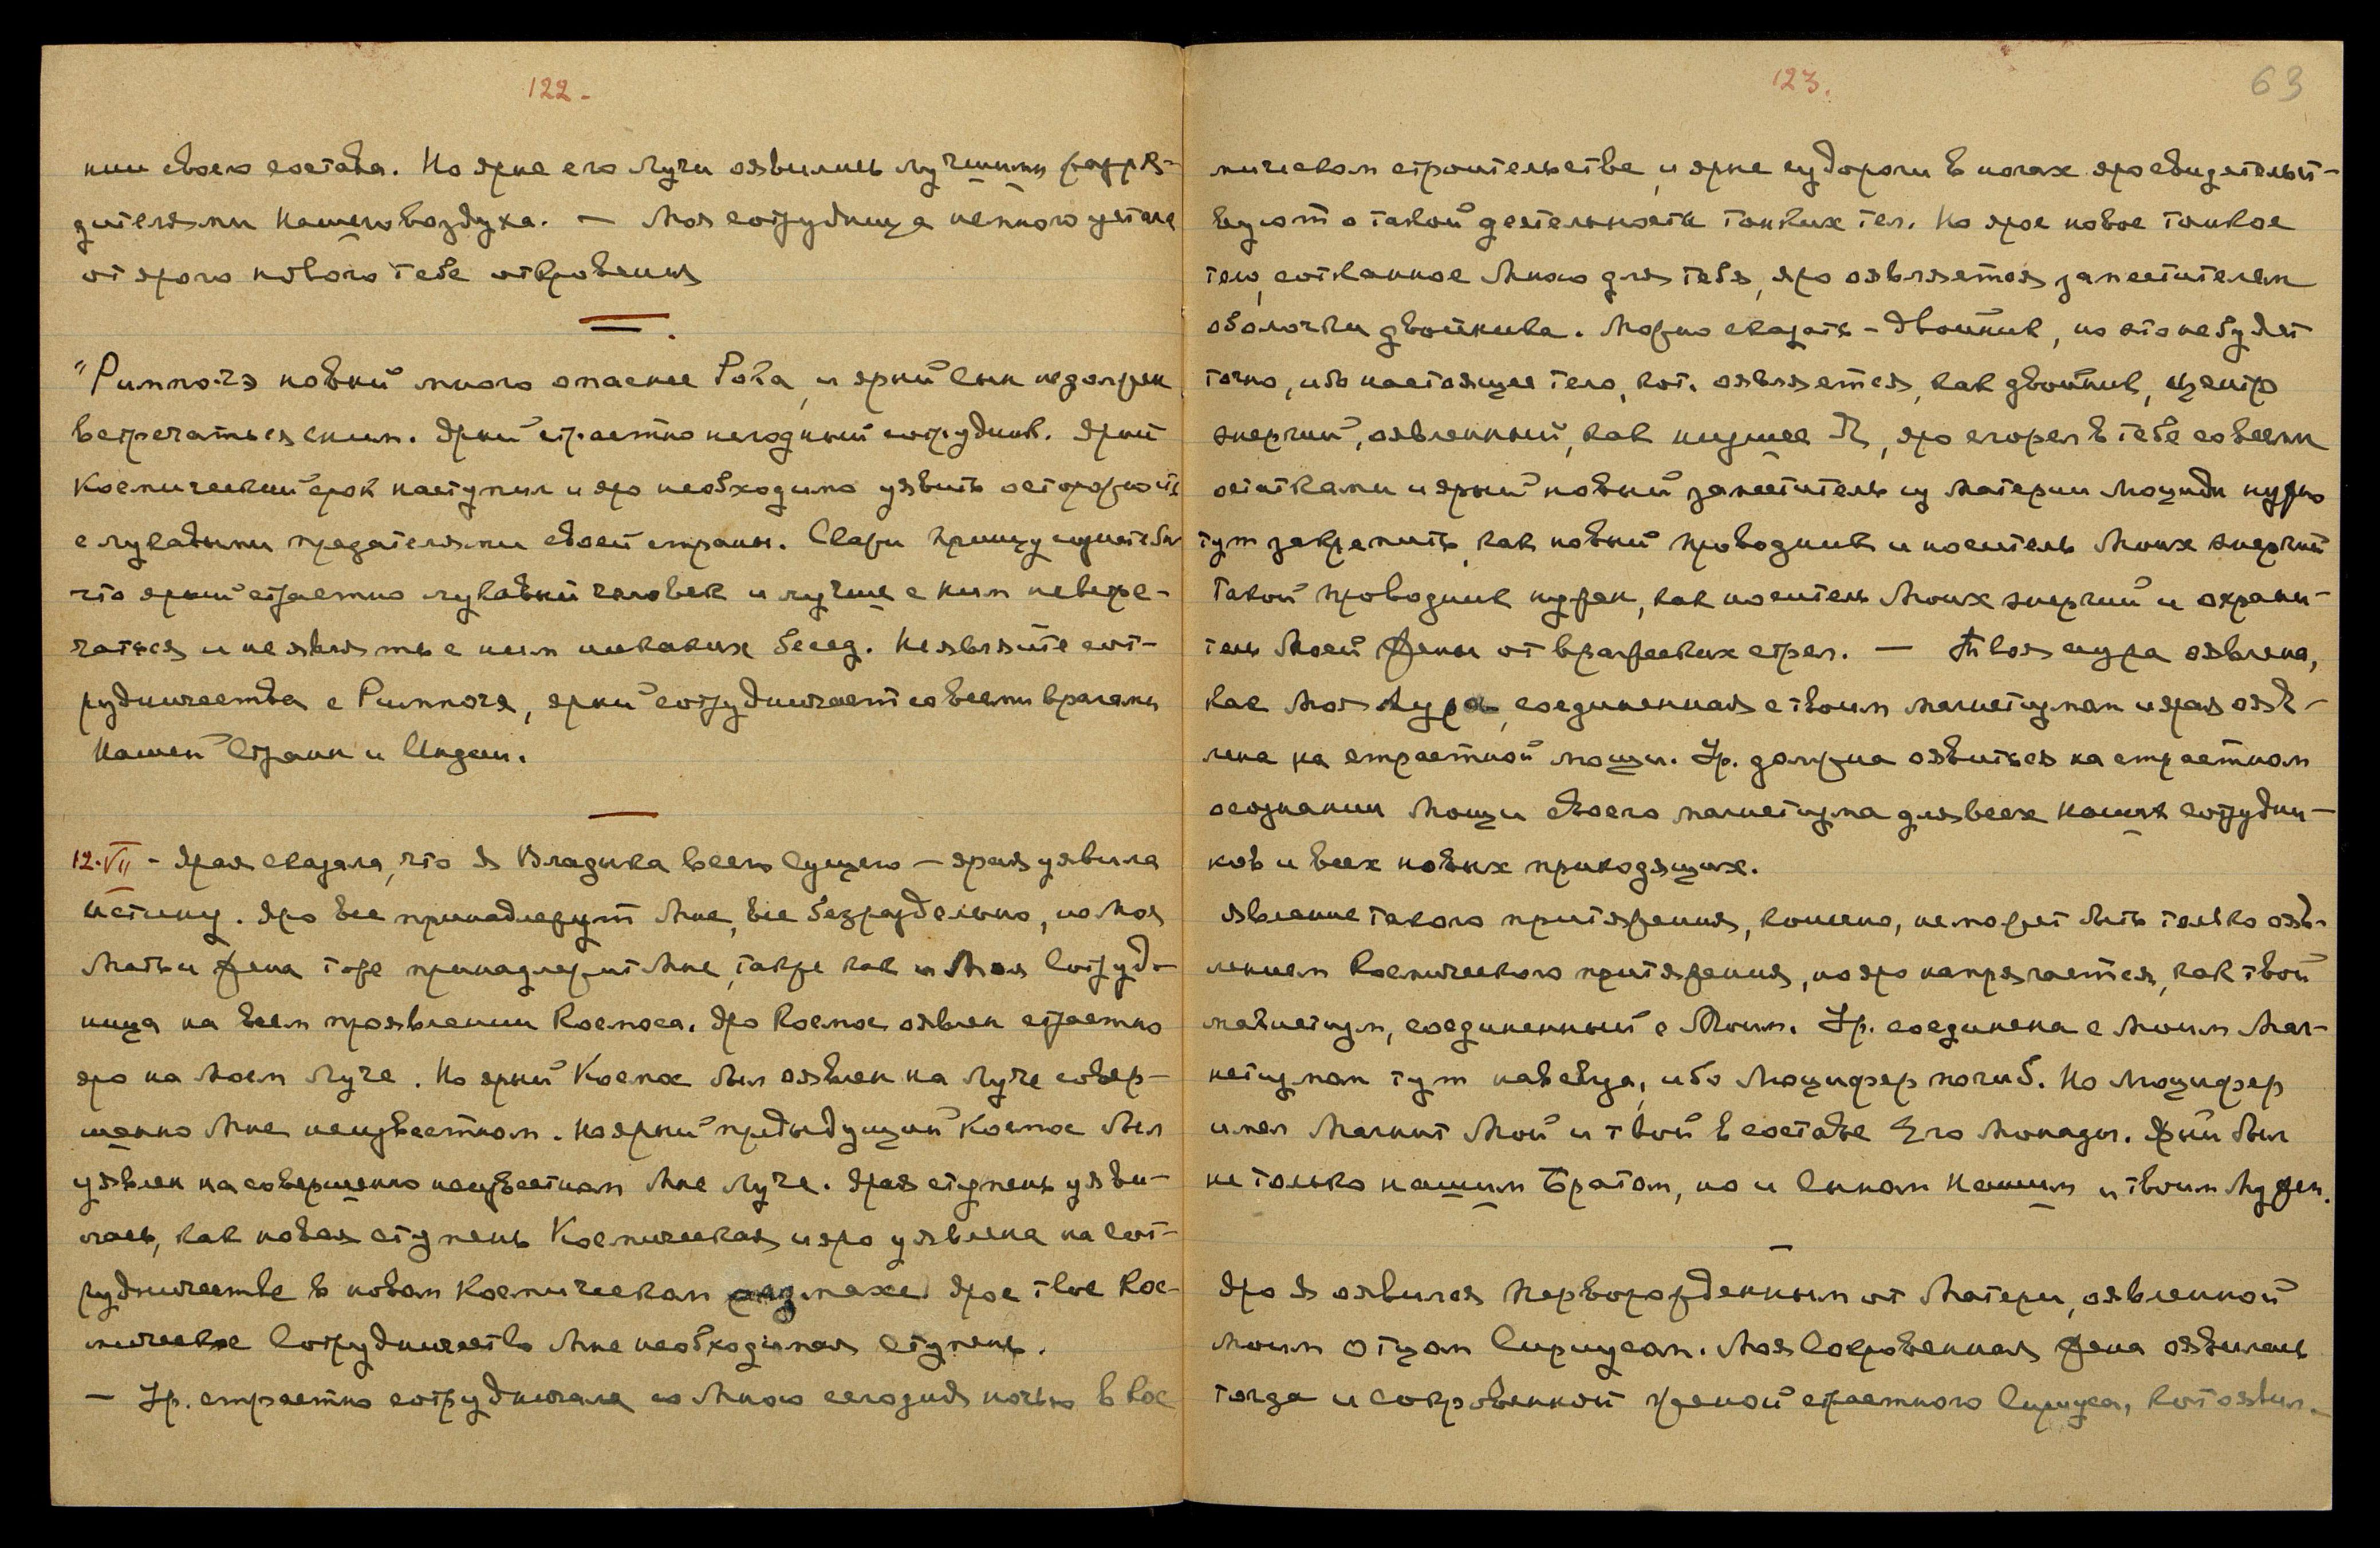 122.
нии своего состава. Но яркие его Лучи оявились лучшими разря-
дителями нашего воздуха. — Моя сотрудница немного устала
от ярого нового тебе откровения
"Римпоче новый много опаснее Рока, и ярый сын не должен
встречаться с ним. Ярый страстно негодный сотрудник. Ярый
Космический срок наступил и яро необходимо уявить осторожность
с лукавыми предателями своей страны. Скажи
что ярый страстно лукавый человек и лучше с ним не встре-
чаться и не являть с ним никаких бесед. Не являйте сот-
рудничества с Римпоче, ярый сотрудничает со всеми врагами
Нашей Страны и Индии.
12.VII - Ярая сказала, что Я Владыка всего Сущего — ярая уявила
истину. Яро все принадлежит Мне, все безраздельно, но Моя
Мать и Жена тоже принадлежит Мне, также как и Моя Сотруд-
ница на всем проявлении Космоса. Яро Космос оявлен страстно
яро на Моем Луче. Но ярый Космос был оявлен на Луче совер-
шенно Мне неизвестном. Но ярый предыдущий Космос был
уявлен на совершенно неизвестном Мне Луче. Ярая ступень уяви-
лась, как новая ступень Космическая и яро уявлена на Сот-
рудничестве в новом Космическом размахе. Ярое твое Кос-
мическое Сотрудничество Мне необходимая ступень.
— Ур. страстно сотрудничала со Мною сегодня ночью в Кос
123.
63
мическом строительстве, и яркие судороги в ногах яро свидетельст-
вуют о такой деятельности тонких тел. Но ярое новое тонкое
тело, сотканное Мною для тебя, яро оявляется заместителем
оболочки двойника. Можно сказать - двойник, но это не будет
точно, ибо настоящее тело, кот. оявляется, как двойник, центр
энергий, оявленный, как низшее Я, яро сгорел в тебе со всеми
остатками и ярый новый заместитель из Материи Люциды нужно
тут закрепить, как новый проводник и носитель Моих энергий
Такой проводник нужен, как носитель Моих энергий и охрани-
тель Моей Жены от вражеских стрел. — Твоя аура оявлена,
как Моя Аура, соединенная с твоим магнетизмом и ярая ояв-
лена на страстной мощи. Ур. должна оявиться на страстном
осознании Мощи своего магнетизма для всех Наших сотрудни-
ков и всех новых приходящих.
Явление такого притяжения, конечно, не может быть только ояв-
лением Космического притяжения, но яро напрягается, как твой
магнетизм, соединенный с Моим. Ур. соединена с Моим Маг-
нетизмом тут навсегда, ибо Люцифер погиб. Но Люцифер
имел Магнит Мой и твой в составе Его Монады. Ярый был
не только нашим Братом, но и Сыном Нашим и твоим Мужем.
Яро Я оявился Перворожденным от Матери, оявленной
Моим Отцом Сириусом. Моя Сокровенная Жена оявилась
тогда и Сокровенной Женой страстного Сириуса, кот оявил.